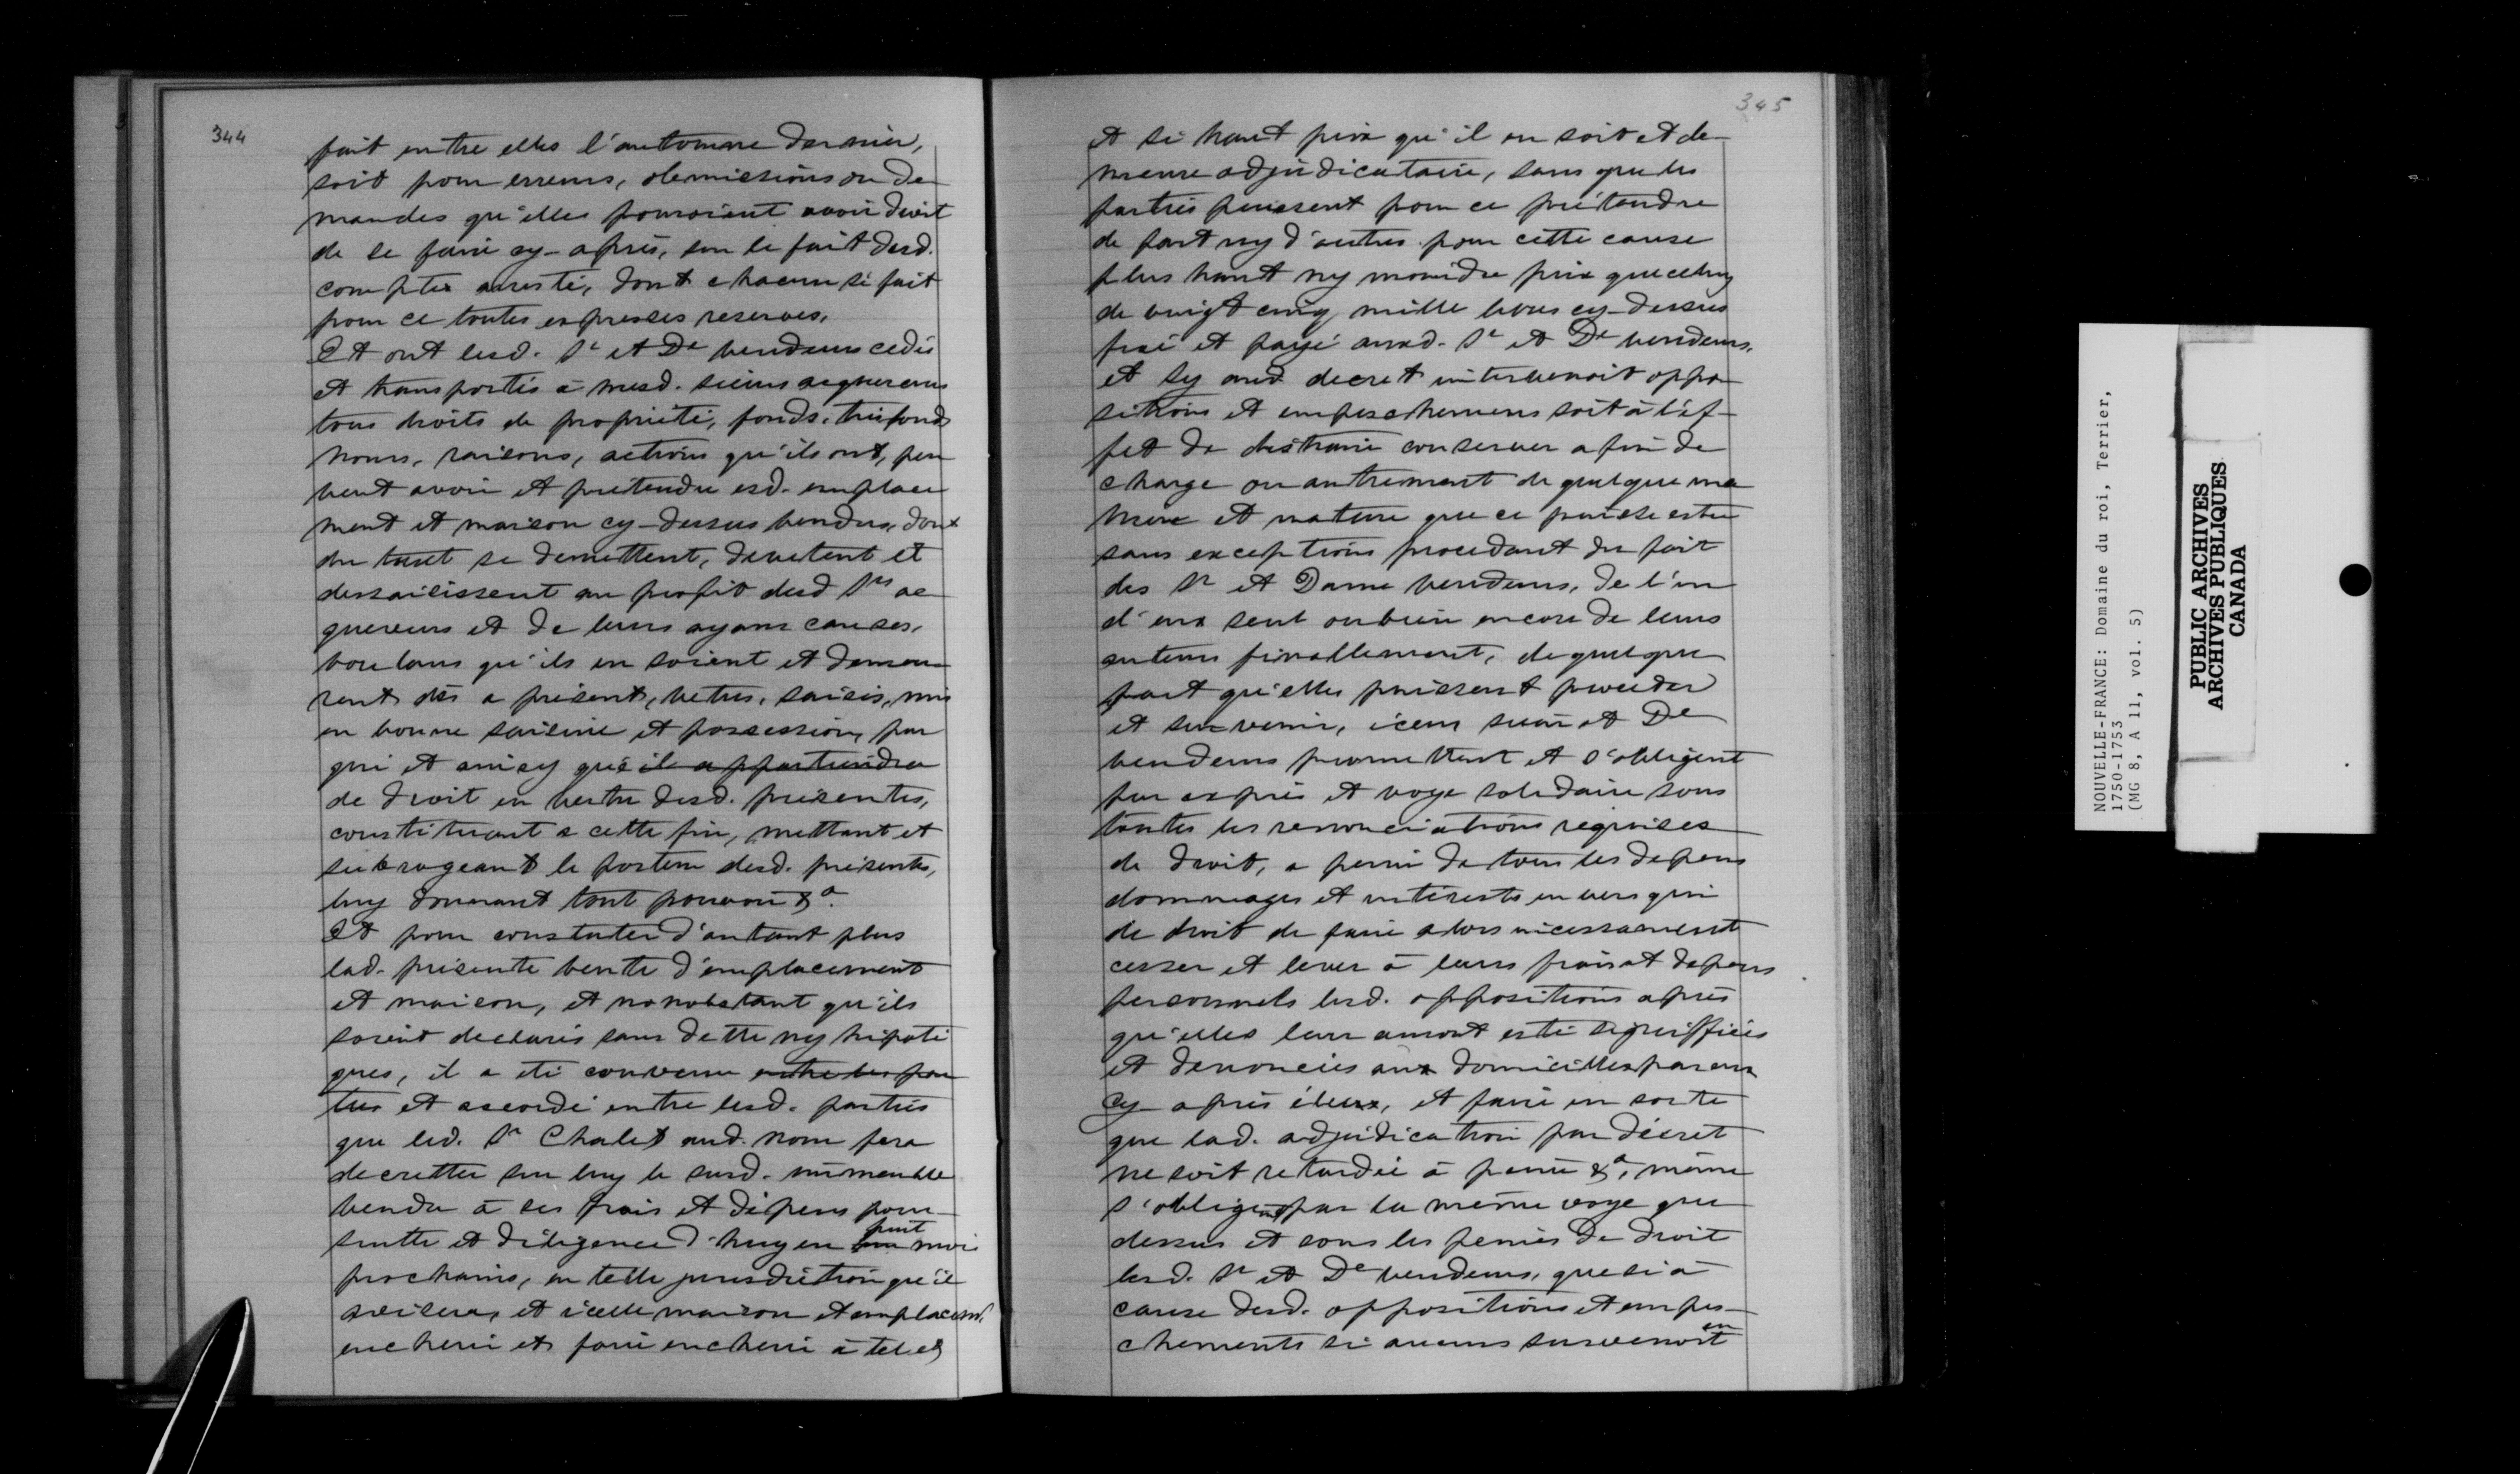 344
fait entre elles l'automne dernier,
soit pour erreurs, obmissions ou de
mandes qu'elles pouroient avoir droit
de se faire cy-après, sur le fait desd.
comptes arresté, dont chacun si fait
pour ce toutes expresses reserves.
Et ont lesd. Sr et De vendeurs cédés
et transportés à mesd. sieurs acquereurs
tous droits de propriété, fonds, tréfonds
noms, raisons, actions qu'ils ont, peu
vent avoir et prétendre esd. emplace
ment et maison cy-dessus vendus, dont
du tout se demettent, devetent et
dessaisissent au profit desd Srs ac
quereurs et de leurs ayans causes,
voulans qu'ils en soient et demeu
rent dès a présent, vetus, saisis, mis
en bonne saisine et possession, par
qui et ainsy qu'il appartiendra
de droit en vertu desd. présentes,
constituant a cette fin, mettant et
subrogeant le porteur desd. présentes,
luy donnant tout pouvoir &a.
Et pour constater d'autant plus
lad. présente vente d'emplacement
et maison, et nonobstant qu'ils
soient declarés sans dette ny hipoté
ques, il a été convenu entre les par
ties et accordé entre lesd. parties
que led. Sr Chalet aud. nom fera
decretter sur luy le susd. immeuble
vendu à ses frais et dépens pour-
suitte et diligence d'huy en huit un mois
prochains, en telle jurisdiction qu'il
avisera, et icelle maison et emplacemt.
encherir et faire encherir à tel et
345
et si haut prix qu'il en soit et de-
meure adjudicataire, sans que les
parties puissent pour ce prétendre
de part ny d'autres pour cette cause
plus haut ny moindre prix que celuy
de vingt cinq mille livres cy-dessus
fixé et payé auxd. Sr et De vendeurs,
et sy aud decret intervenoit oppo
sitions et empeschemens soit à l'ef-
fet de distraire conserver afin de
charge ou autrement de quelque ma
niere et nature que ce puisse estre
sans exceptions procedant du fait
des Sr et Dame vendeurs, de l'un
d'eux seul ou bien encore de leurs
auteurs finallement, de quelque
part qu'elles puissent proceder
et survenir, iceux sieur et De
vendeurs promettent et s'obligent
par exprès et voye solidaire sous
toutes les renonciations requises
de droit, a peine de tous les depens
dommages et intérests envers qui
de droit de faire alors incessament
cesser et lever à leurs frais et depens
personnels lesd. oppositions après
qu'elles leur auront esté signiffiées
et denoncées aux domicilles par eux
cy après éleux, et faire en sorte
que lad. adjudication par décret
ne soit retardée à peine &a, même
s'obligent par la même voye que
dessus et sous les peines de droit
lesd. Sr et De vendeurs, que si à
cause desd. oppositions et empes-
chements si aucuns survenoit en
NOUVELLE-FRANCE: Domaine du roi, Terrier,
1750-1753
(MG 8, A 11, vol. 5)
PUBLIC ARCHIVES
ARCHIVES PUBLIQUES
CANADA